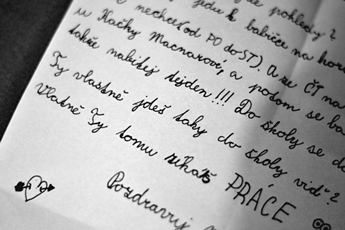 jdu k babičce na hor
nechce(od PO do ST). A ze ČT na
u Kačky Macnarové, a potom se ba
takže nabitej tejden!!! Do školy se d
Ty vlastně jdeš taky do školy vid'?
Vlastně Ty tomu říkáš PRÁCE
Pozdravuj